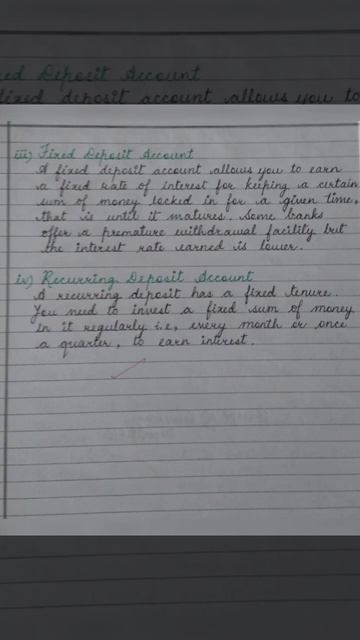 ed Deposit Account
fixed deposit account allows you to
iii) Fixed Deposit Account
A fixed deposit account allows you to earn
a fixed rate of interest for keeping a certain
sum of money locked in for a given time,
that is until it matures. Some banks
offer a premature withdrawal facility but
the interest rate earned is lower.
iv) Recurring Deposit Account
A recurring deposit has a fixed tenure.
You need to invest a fixed sum of money
in it regularly i.e, every month or once
a quarter, to earn interest.